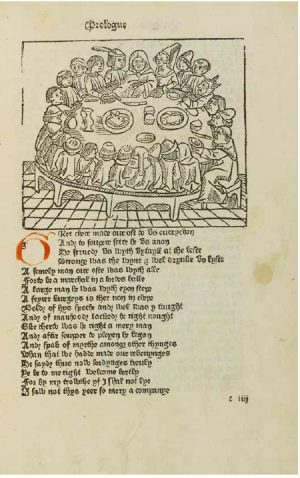 Prologue
Ret chere made our ost to vs euerychon
And to souper sette he vs anon
He serued vs wyth vytayll at the beste
Strong was the wyne & wel drynke vs lyste
A semely man our oste was wyth alle
For to be a marchal in a lordes halle
A large man he was wyth eyen stepe
A feyrer burgeys is ther non in chepe
Boldy of hys speche and wel was y taught
And of manhood lackede he right nought
Eke therto was he right a mery man
And after souper to pleyen he began
And spak of myrthe among other thynges
Whan that we hadde made our rekenynges
He sayde thus now lordynges trewly
Ye be to me right welcome hertly
For by my trowthe yf I shal not lye
I saw not thys yeer so mery a companye